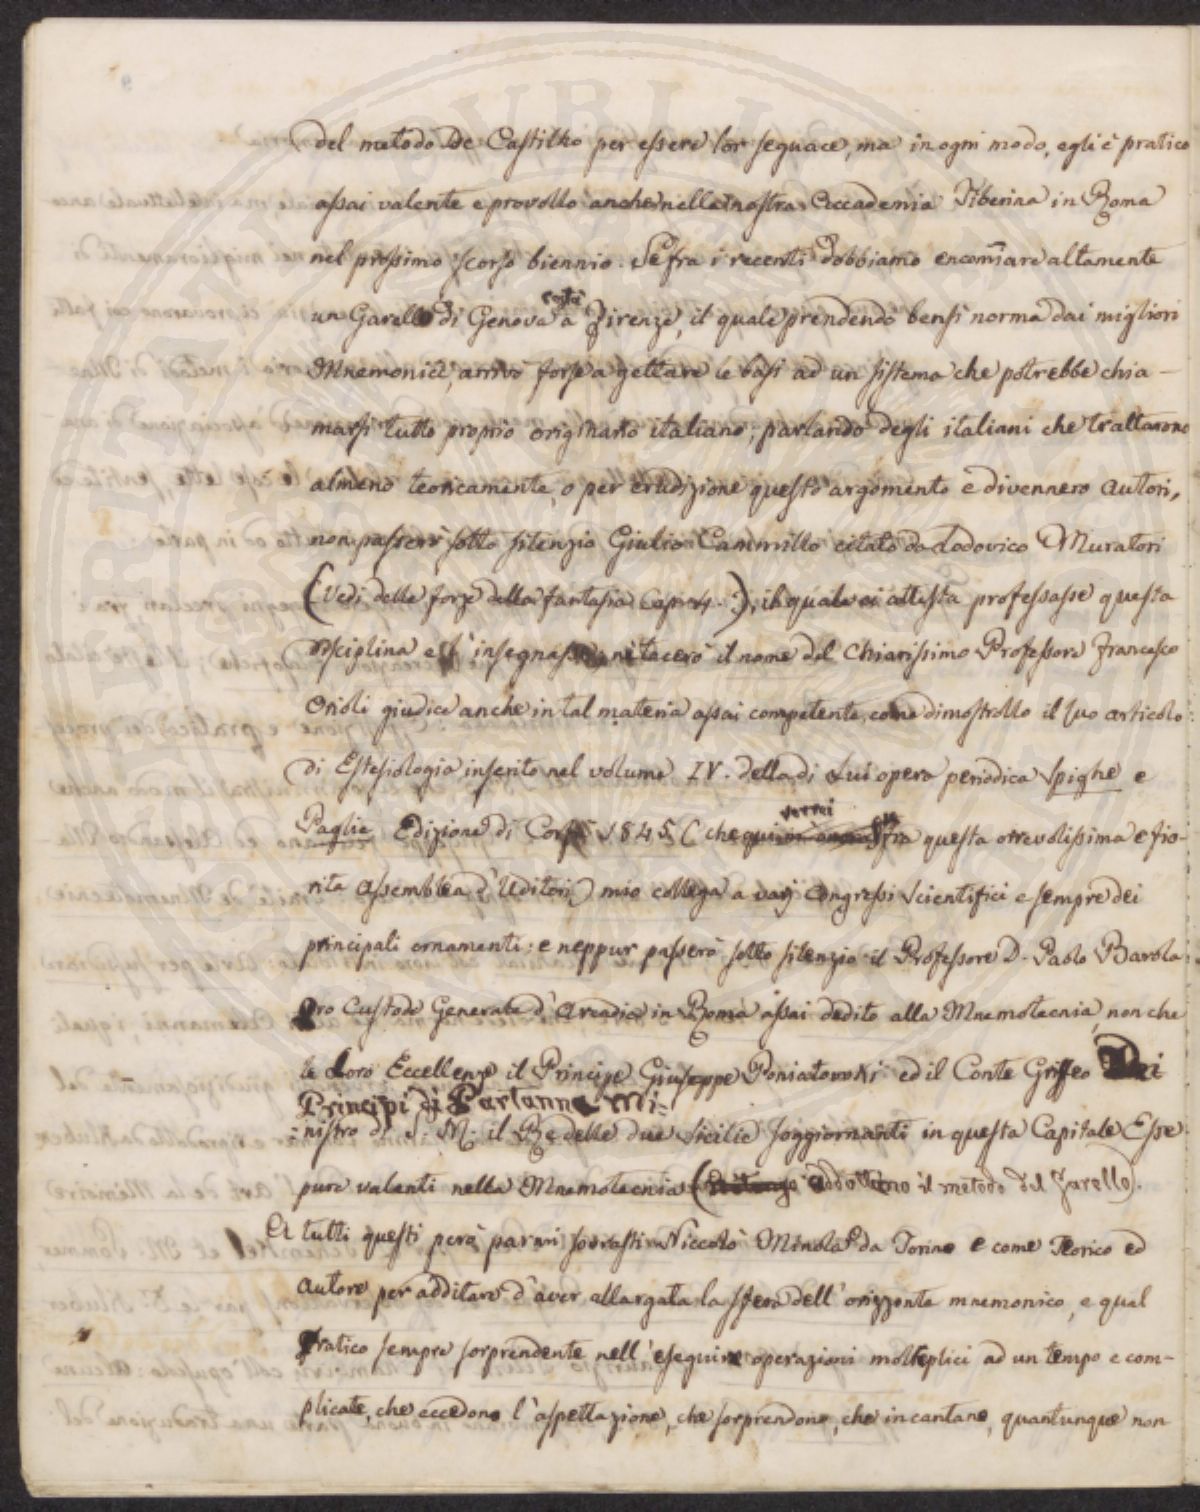 del metodo De Castilho per essere lor seguace, ma in ogni modo, egli è pratico
assai valente e provollo anche nella nostra Accademia Tiberina in Roma
nel prossimo scorso biennio. Se fra i recenti dobbiamo encomiare altamente
un Garello di Genova costì a Firenze, il quale prendendo bensì norma dai migliori
Mnemonici, arrivò forse a gettare le basi ad un sistema che potrebbe chia-
marsi tutto proprio originario italiano; parlando degli italiani che trattarono
almeno teoricamente, o per erudizione questo argomento e divennero autori,
non passerò sotto silenzio Giulio Cammillo citato da Lodovico Muratori
(Vedi delle forze della fantasia Cap.), il quale ci attesta professasse questa
disciplina e l'insegnasse, nè tacerò il nome del Chiarissimo Professore Francesco
Orioli giudice anche in tal materia assai competente, come dimostrollo il suo articolo
di Estesiologia inserito nel volume IV. della di Lui opera periodica Spighe e
Paglie Edizione di Corfù 1845 (che vorrei fra questa orrevolissima e fio-
rita assemblea d'Uditori) mio collega a varj Congressi Scientifici e sempre dei
principali ornamenti: e neppur passerò sotto silenzio il Professore D. Paolo Barola
Pro Custode Generale d'Arcadia in Roma assai dedito alla Mnemotecnia, non che
le Loro Eccellenze il Principe Giuseppe Poniatowski ed il Conte Grifeo Dei
Principi di Partanna Mi-
nistro di S. M. il Re delle due Sicilie soggiornanti in questa Capitale Esse
pure valenti nella Mnemotecnia ( addottano il metodo del Garello).
A tutti questi però parmi sovrasti Niccolò Minola da Torino e come Teorico ed
autore per additare d'aver allargata la sfera dell'orizzonte mnemonico, e qual
Pratico sempre sorprendente nell'eseguire operazioni molteplici ad un tempo e com-
plicate, che eccedono l'aspettazione, che sorprendono, che incantano, quantunque non